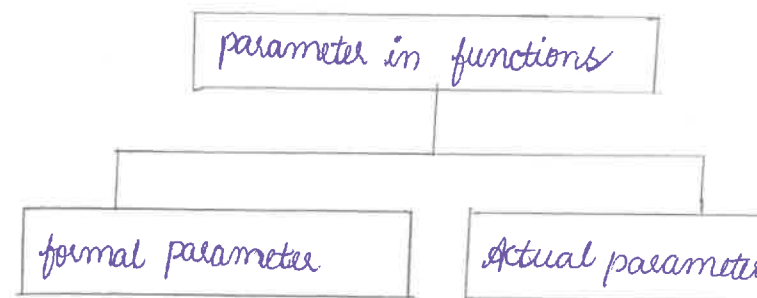 parameter in functions
formal parameter
Actual parameter